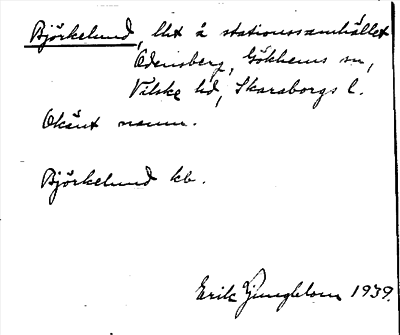 Björkelund, lht å stationssamhället
Odensberg, Gökhems sn,
Vilske hd, Skaraborgs l.
Okänt namn.
Björkelund kb.
Erik Ljungblom 1939.